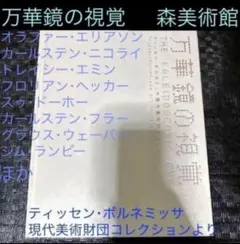 万華鏡の視覚　森美術館
オラファー・エリアソン
カールステン・ニコライ
トレイシー・エミン
フロリアン・ヘッカー
スゥ・ドーホー
カールステン・フラー
クラウス・ウェーバー
ジム・ランビー
ほか
万華鏡の視覚
THE KALEIDOSCOPIC EYE
ティッセン・ボルネミッサ
現代美術財団コレクションより